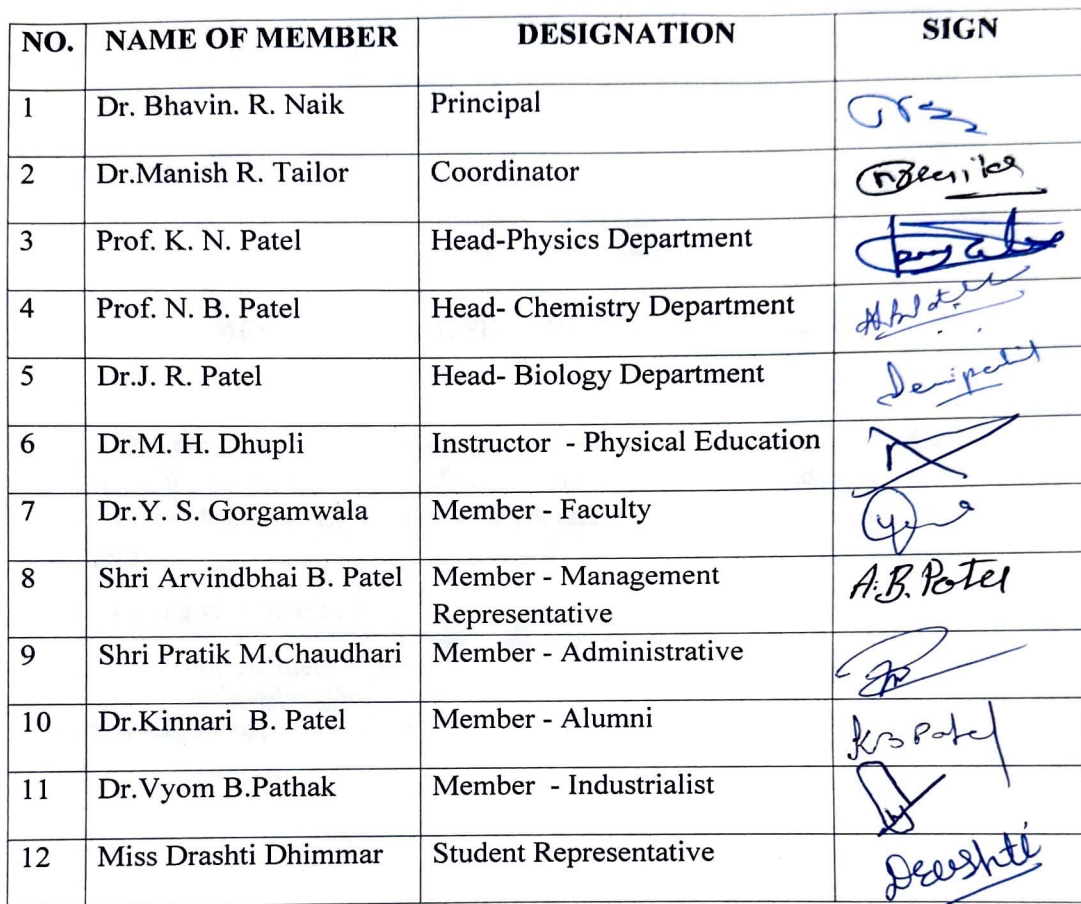 NO. NAME OF MEMBER DESIGNATION SIGN
1 Dr. Bhavin. R. Naik Principal
2 Dr.Manish R. Tailor Coordinator
3 Prof. K. N. Patel Head-Physics Department
4 Prof. N. B. Patel Head- Chemistry Department
5 Dr.J. R. Patel Head- Biology Department
6 Dr.M. H. Dhupli Instructor - Physical Education
7 Dr.Y. S. Gorgamwala Member - Faculty
8 Shri Arvindbhai B. Patel Member - Management A.B. Patel
Representative
9 Shri Pratik M.Chaudhari Member - Administrative
10 Dr.Kinnari B. Patel Member - Alumni KBPatel
11 Dr.Vyom B.Pathak Member - Industrialist
12 Miss Drashti Dhimmar Student Representative Drashti